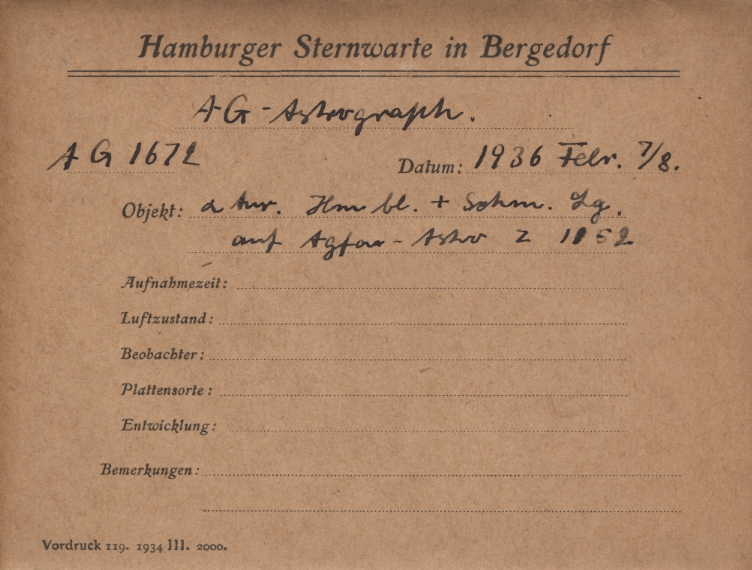 Hamburger Sternwarte in Bergedorf
AG-Astrograph.
AG 1672 Datum: 1936 Febr. 7/8.
Objekt: α Aur. bl. + Schm.
auf Agfa-Astro Z 1152
Aufnahmezeit:
Luftzustand:
Beobachter:
Plattensorte:
Entwicklung:
Bemerkungen:
Vordruck 119. 1934 III. 2000.